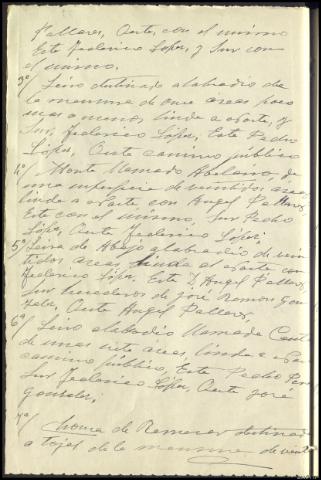 Pallares, Oeste, con el mismo
Este Federico López, y Sur con
el mismo.
3ª/ Leiro destinado a labradio de
la mensura de once áreas poco
mas o menos linda Norte, y
Sur, Federico López, Este Pedro
López, Oeste camino público
4ª/ Monte llamado Abelaira, de
una superficie de veintidos áreas
linda Norte con Angel Pallares,
Este con el mismo, Sur Pedro
López, Oeste Federico López;
5ª/ Leira de Abajo a labradio de vein
tidos áreas linda al Norte con
Federico López, Este D. Angel Pallares,
Sur herederos de José Ramon Gon
zalez, Oeste Angel Pallares,
6ª/ Leiro a labradio llamado
de unas siete áreas, linda Norte
camino público, Este Pedro
Sur Federico López, Oeste José
Gonzalez;
7ª/ Chousa de destinado
a tojal de la mensura de veinti